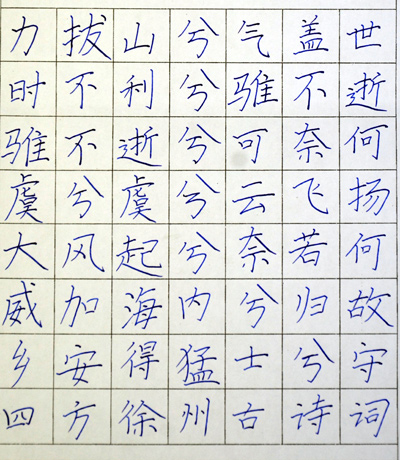 力拔山兮气盖世
时不利兮骓不逝
骓不逝兮可奈何
虞兮虞兮云飞扬
大风起兮奈若何
威加海内兮归故
乡安得猛士兮守
四方徐州古诗词